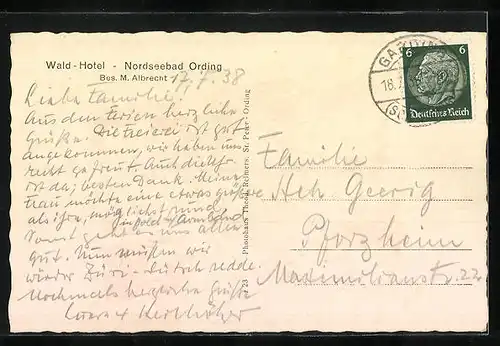 Wald-Hotel - Nordseebad Ording
Bes. M. Albrecht
17. 7. 38
Liebe Familie.
Aus den Ferien herzliche
Grüße. Die ist gut
angekommen, wir haben uns
recht gefreut. Auch die
ist da, besten Dank. Meine
Frau möchte eine etwas größere
als ihre, möglichst rund
Sonst geht es uns allen
gut. Nun müßen wir
wieder Züri-Dütsch redde.
Nochmals herzliche Grüße
Photohaus Theod. Reimers, St. Peter-Ording
23
GARDING
18.7.
6 6
Deutsches Reich
Familie
Hch. Geerig
Pforzheim
Maximilianstr. 22